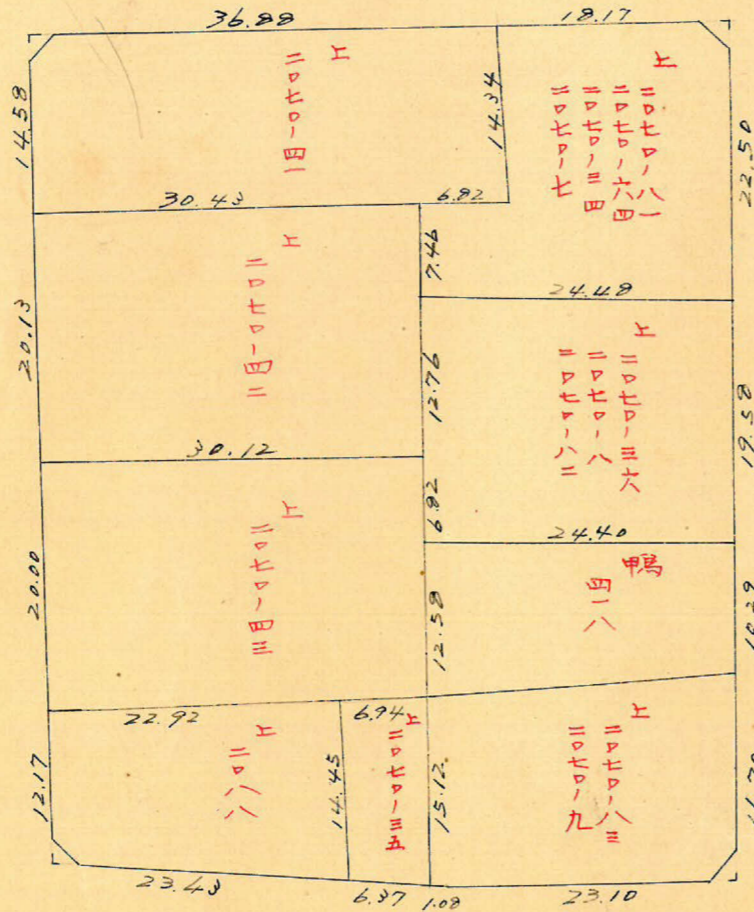 36.88
18.17
14.58
上
二〇七〇ー四一
14.34
上
二〇七〇ー八一
二〇七〇ー六四
二〇七〇ー三四
二〇七〇ー七
22.50
30.43
6.82
7.46
24.48
20.13
上
二〇七〇ー四二
12.76
上
二〇七〇ー三六
二〇七〇ー八
二〇七〇ー八二
19.58
30.12
6.82
24.40
20.00
上
二〇七〇ー四三
12.58
鴨
四一八
22.92
6.94
12.17
上
二〇八八
14.45
上
二〇七〇ー三五
15.12
上
二〇七〇ー八三
二〇七〇ー九
23.43
6.37
1.08
23.10